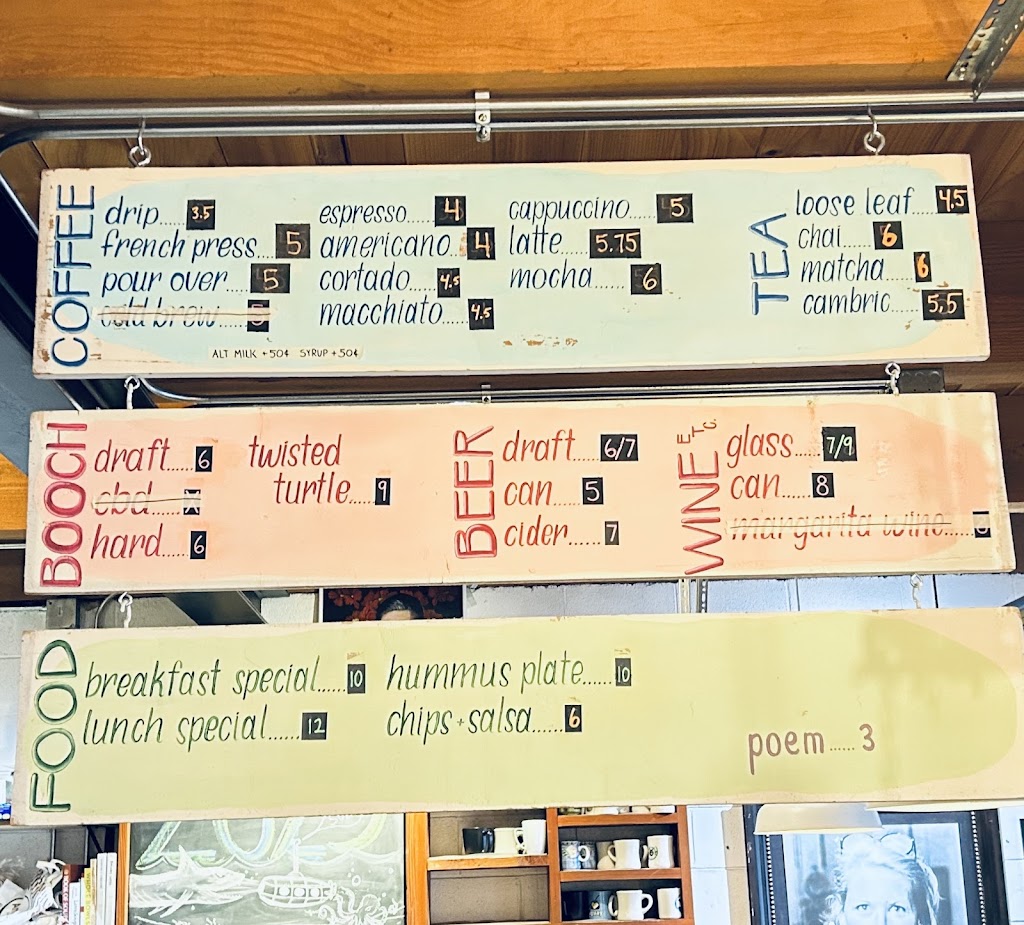 COFFEE
drip.....3.5
french press....5
pour over.....5
cold brew.....5
espresso.....4
americano..4
cortado....4.5
macchiato....4.5
cappuccino.....5
latte....5.75
mocha......6
ALT MILK +50¢ SYRUP +50¢
TEA
loose leaf....4.5
chai......6
matcha.....6
cambric......5.5
BOOCH
draft.....6
cbd.....
hard......6
twisted
turtle....9
BEER
draft.....6/7
can.....5
cider......7
WINE ETC.
glass.....7/9
can.....8
margarita wine.....
FOOD
breakfast special......10
lunch special.......12
hummus plate......10
chips+salsa......6
poem......3